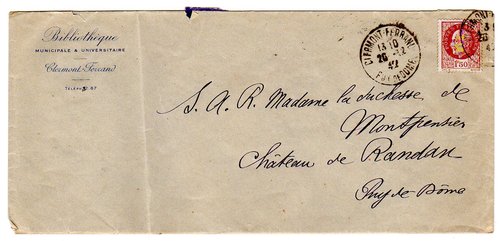 Bibliothèque
MUNICIPALE & UNIVERSITAIRE
Clermont-Ferrand
CLERMONT-FERRAND
13 10
26 -12
42
PUY-DE-DÔME
1F50
S. A. R. Madame la duchesse de
Montpensier
Château de Randan
Puy-de-Dôme